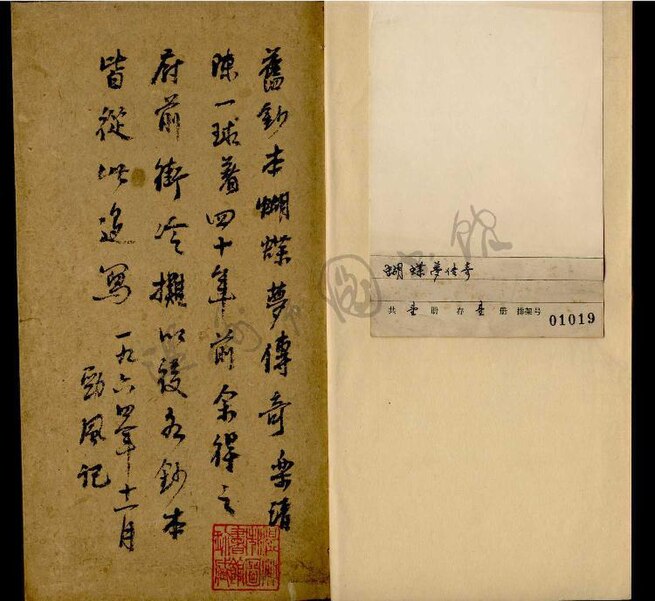 舊鈔本蝴蝶夢傳奇樂清
陳一球著四十年前余得之
府前街冷攤以後各鈔本
皆從此迻寫一九六四年十一月
勁風記
蝴蝶夢传奇
共 壹 册 存 壹 册 排架号 01019